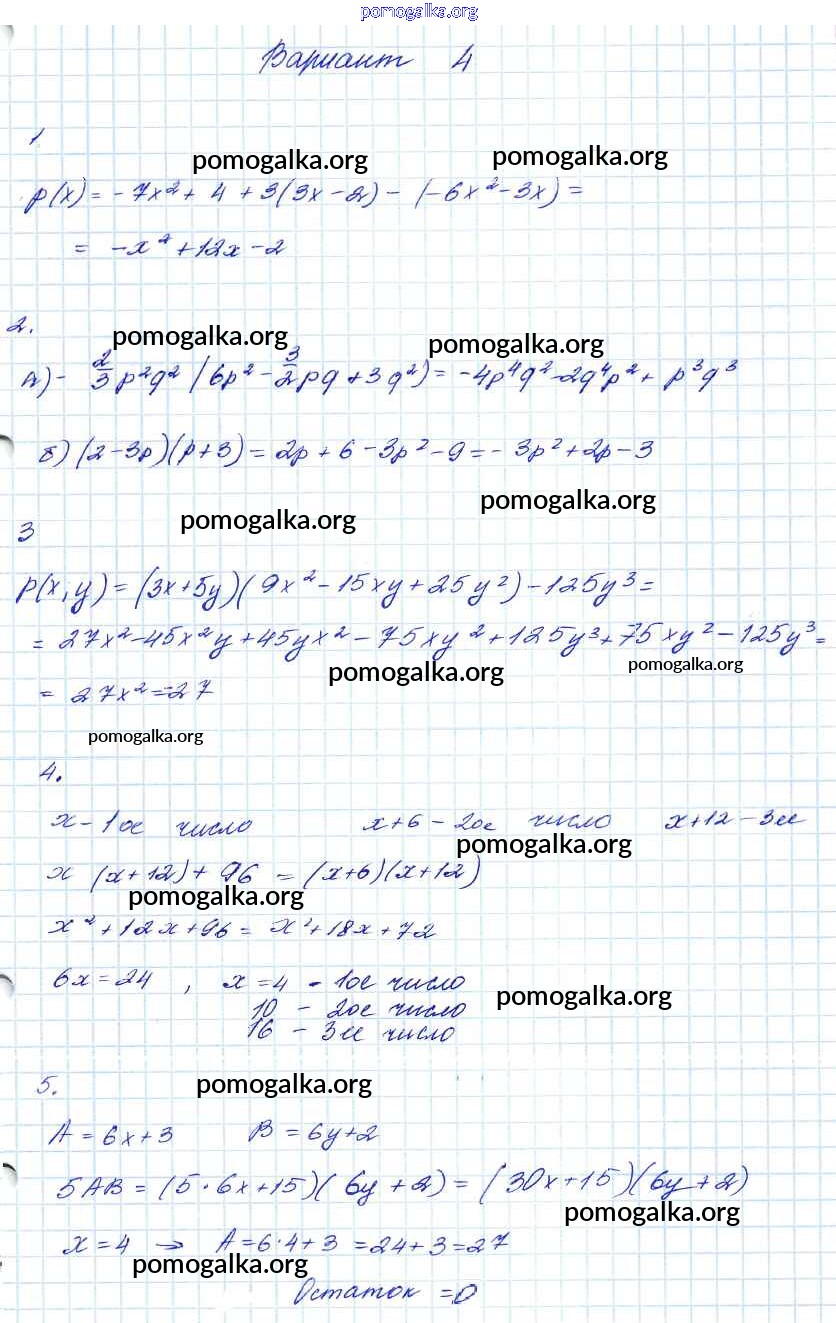 pomogalka.org
Вариант 4
1
pomogalka.org pomogalka.org
p(x) = -7x² + 4 + 3(3x-2) - (-6x²-3x) =
= -x² + 12x - 2
2.
pomogalka.org pomogalka.org
а) - 2/3 p²q² (6p² - 3/2 pq + 3q²) = -4p⁴q² - 2q⁴p² + p³q³
б) (2-3p)(p+3) = 2p + 6 - 3p² - 9 = - 3p² + 2p - 3
pomogalka.org pomogalka.org
3
p(x,y) = (3x+5y)(9x² - 15xy + 25y²) - 125y³ =
= 27x² - 45x²y + 45yx² - 75xy² + 125y³ + 75xy² - 125y³ =
pomogalka.org pomogalka.org
= 27x² = -27
pomogalka.org
4.
x - 1ое число x+6 - 2ое число x+12 - 3ее
pomogalka.org
x (x+12) + 96 = (x+6)(x+12)
pomogalka.org
x² + 12x + 96 = x² + 18x + 72
6x = 24 , x = 4 - 1ое число
10 - 2ое число
pomogalka.org
16 - 3ее число
5.
pomogalka.org
A = 6x+3 B = 6y+2
5AB = (5·6x+15)(6y+2) = (30x+15)(6y+2)
pomogalka.org
x = 4 → A = 6·4+3 = 24+3 = 27
pomogalka.org
Остаток = 0